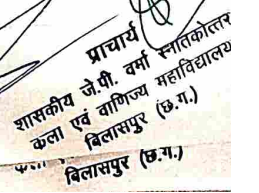 प्राचार्य
शासकीय जे.पी. वर्मा स्नातकोत्तर
कला एवं वाणिज्य महाविद्यालय
बिलासपुर (छ.ग.)
बिलासपुर (छ.ग.)